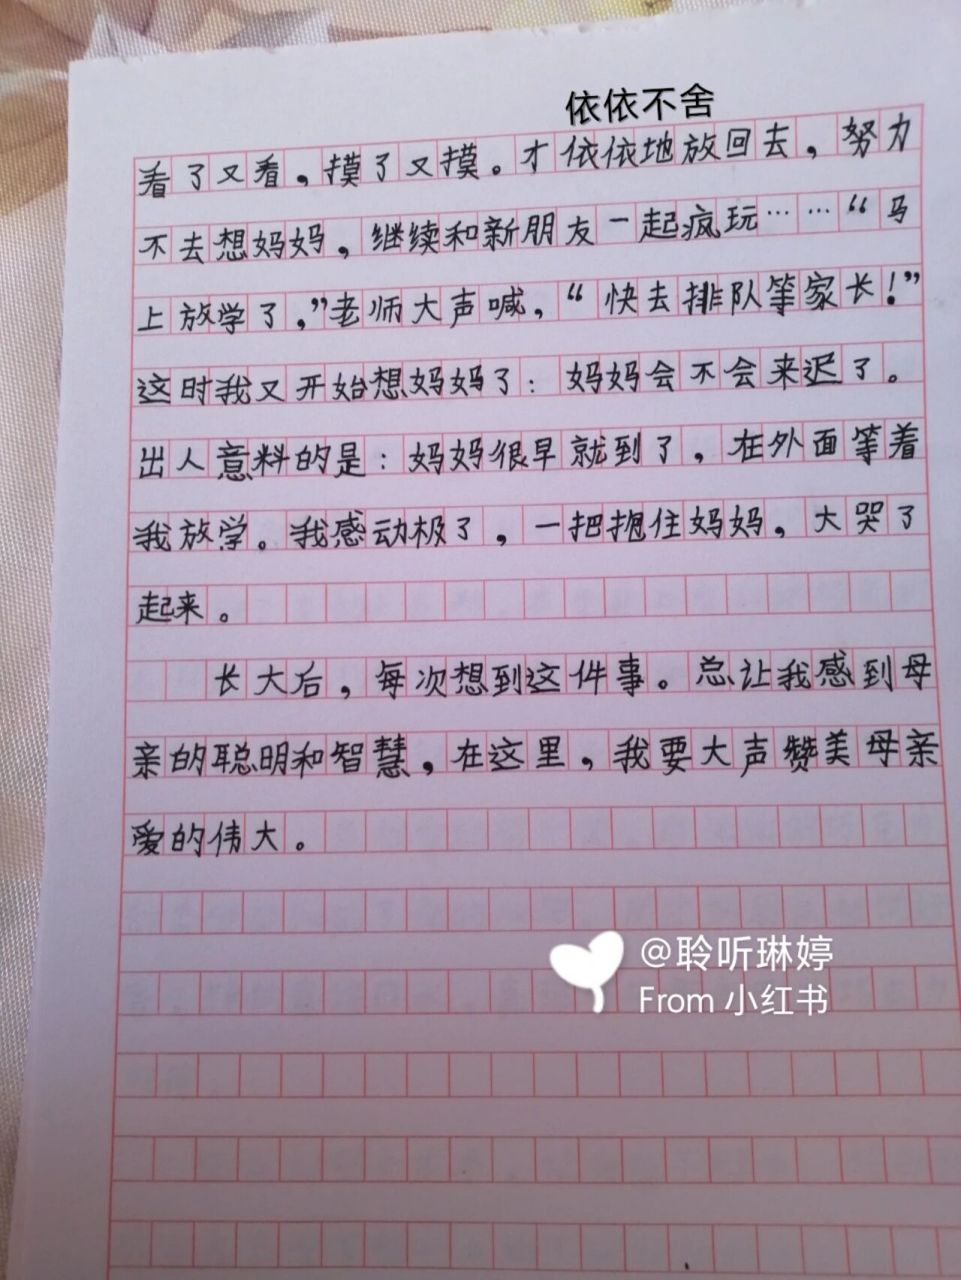 依依不舍
看了又看，摸了又摸。才依依地放回去，努力
不去想妈妈，继续和新朋友一起疯玩……“马
上放学了，”老师大声喊，“快去排队等家长！”
这时我又开始想妈妈了：妈妈会不会来迟了。
出人意料的是：妈妈很早就到了，在外面等着
我放学。我感动极了，一把抱住妈妈，大哭了
起来。
长大后，每次想到这件事。总让我感到母
亲的聪明和智慧，在这里，我要大声赞美母亲
爱的伟大。
@聆听琳婷
From 小红书